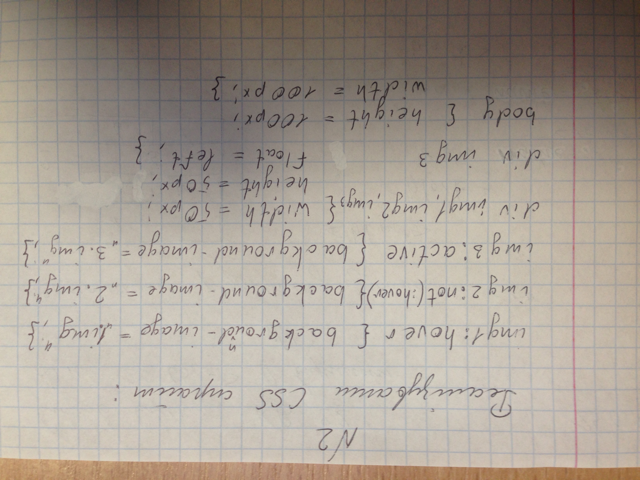 N2
Реалізувати CSS спрайт:
img1:hover { background-image = "1.img"; }
img2:not(:hover){ background-image = "2.img"; }
img3:active { background-image = "3.img"; }
div img1, img2, img3 { width = 50px;
height = 50px;
div img3 float = left; }
body { height = 100px;
width = 100px; }